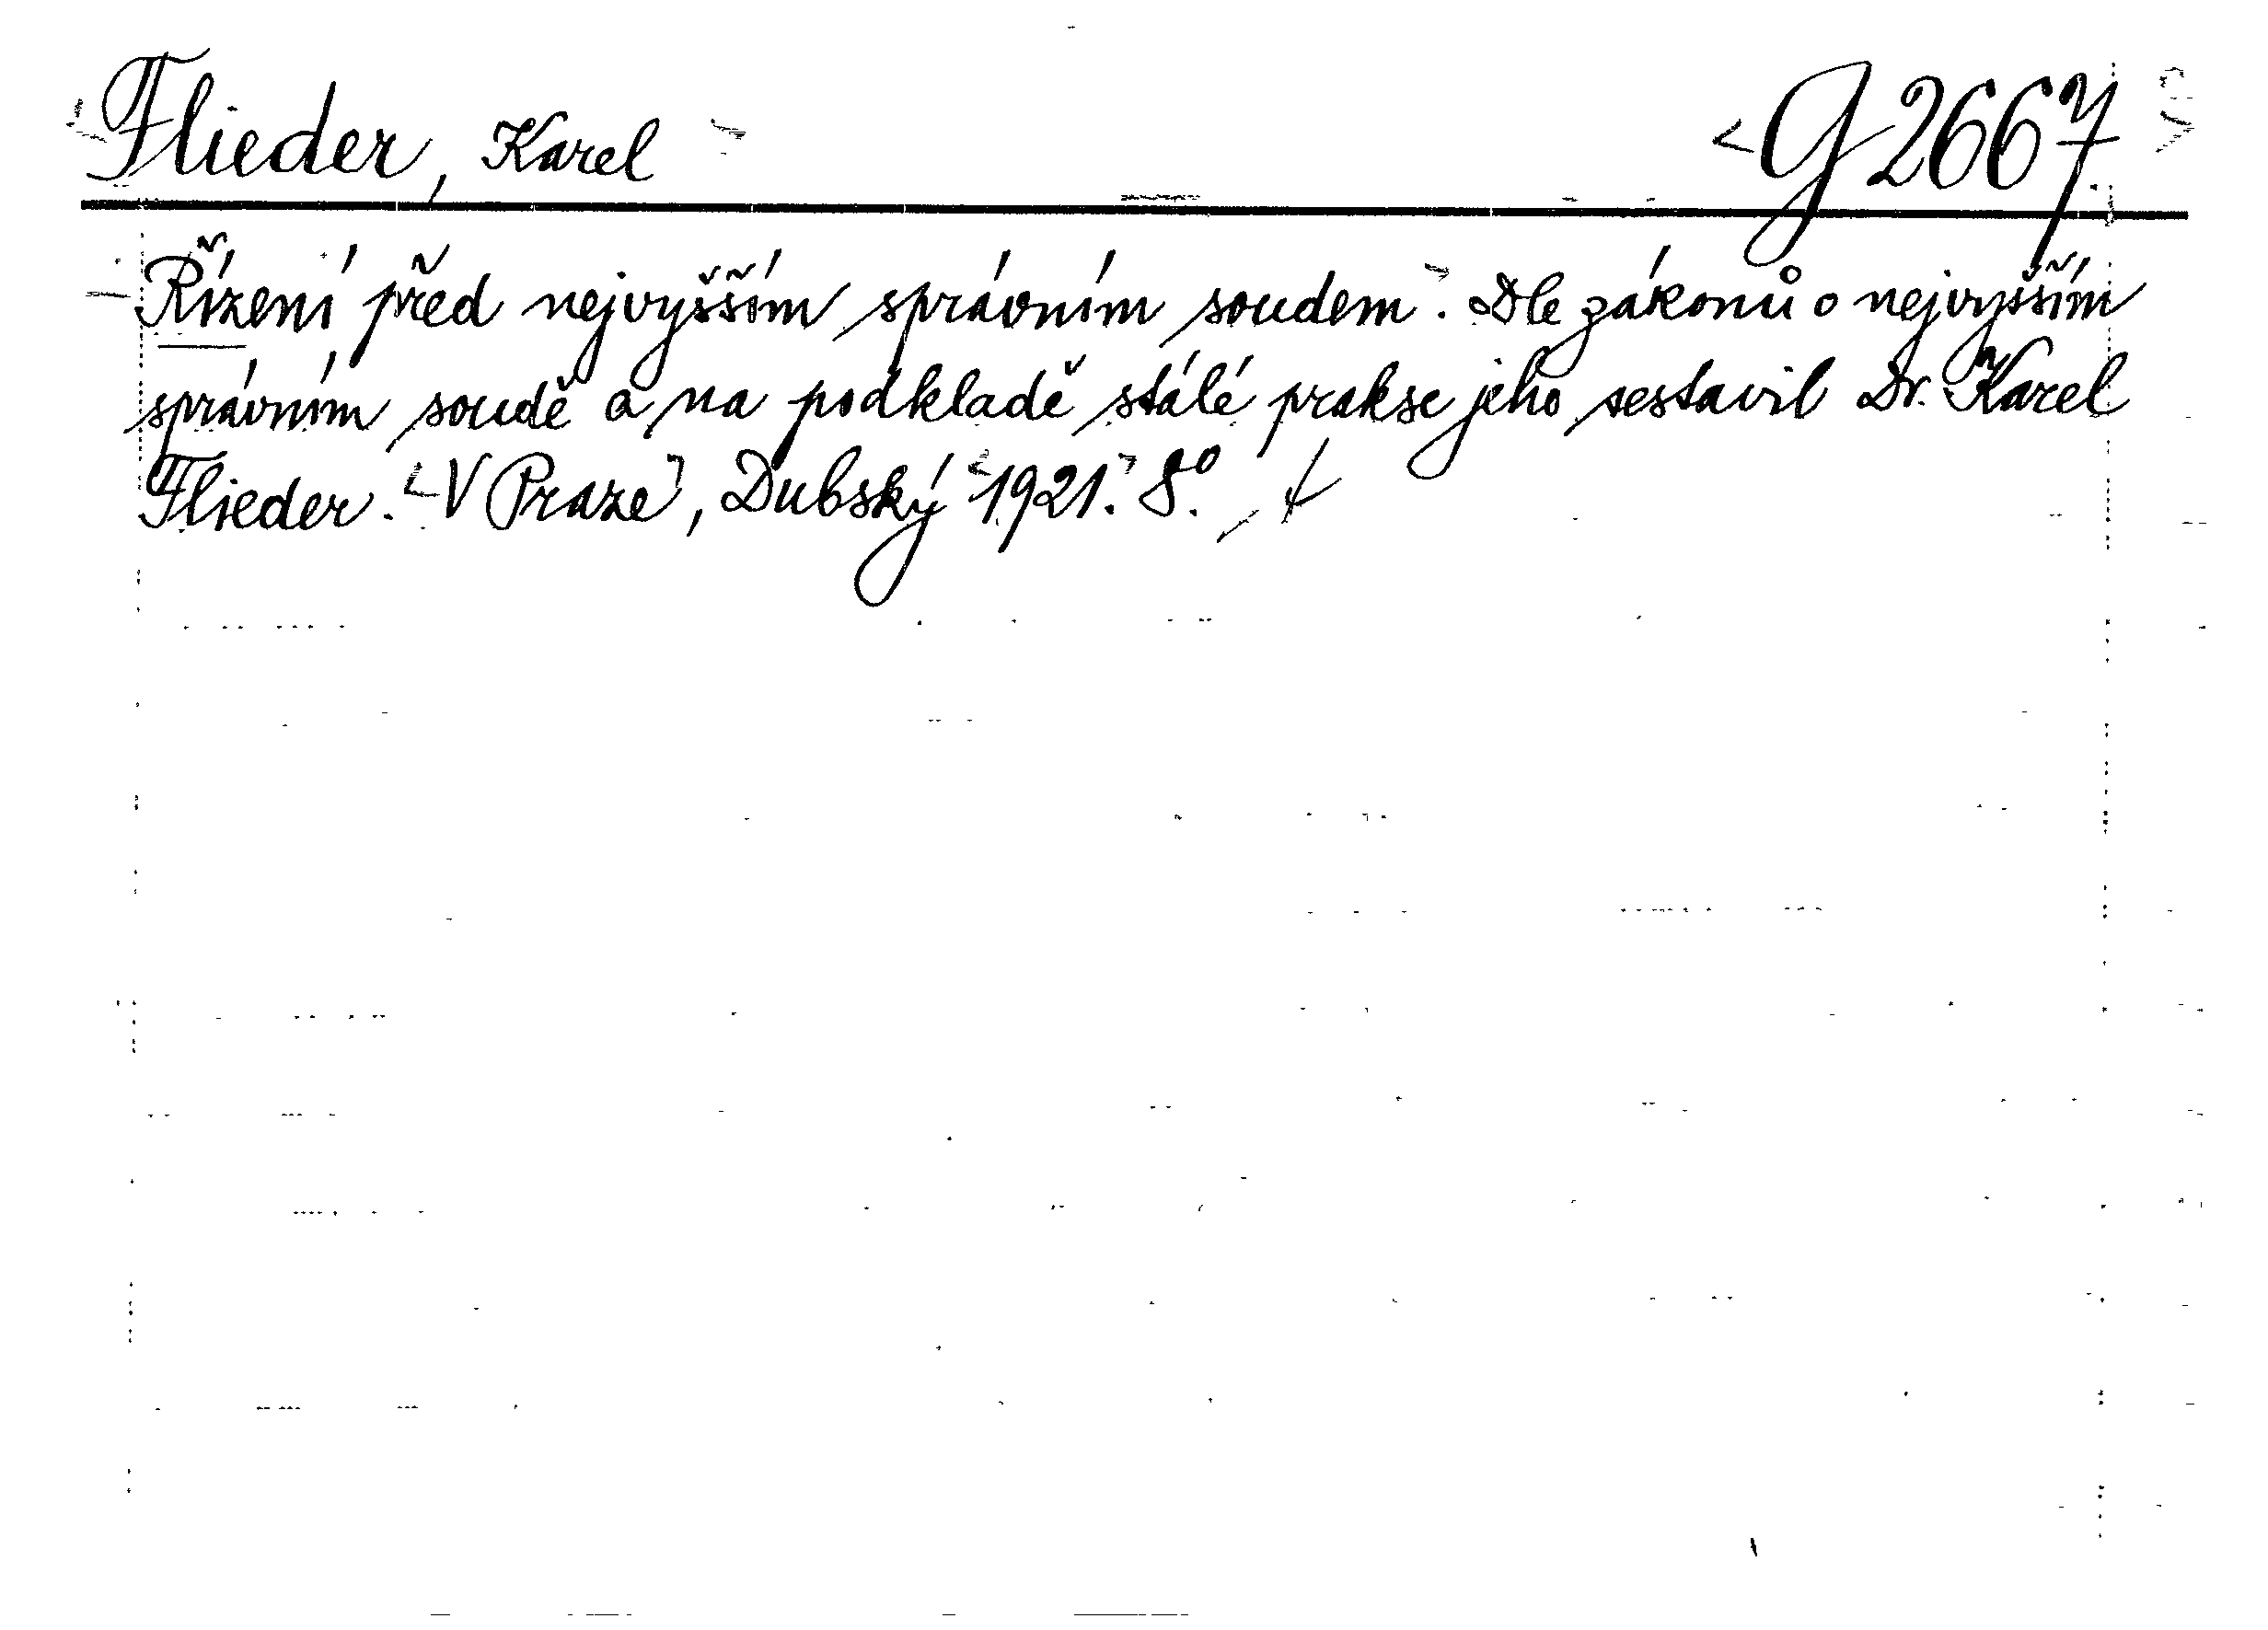 Flieder, Karel G 2667
Řízení před nejvyšším správním soudem. Dle zákonů o nejvyšším
správním soudě a na podkladě stálé prakse jeho sestavil Dr. Karel
Flieder. V Praze, Dubský 1921. 8°.